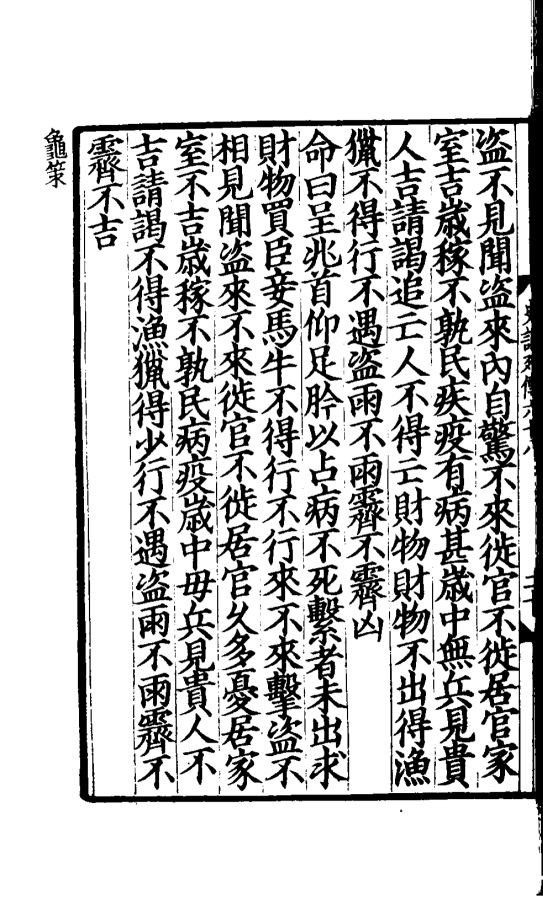 盜不見聞盜來內自驚不來徙官不徙居官家
室吉歲稼不孰民疾疫有病甚歲中無兵見貴
人吉請謁追亡人不得亡財物財物不出得漁
獵不得行不遇盜雨不雨霽不霽凶
命曰呈兆首仰足肣以占病不死繫者未出求
財物買臣妾馬牛不得行不行來不來擊盜不
相見聞盜來不來徙官不徙居官久多憂居家
室不吉歲稼不孰民病疫歲中毋兵見貴人不
吉請謁不得漁獵得少行不遇盜雨不雨霽不
霽不吉
龜策